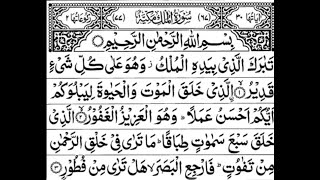 اٰيَاتُهَا ٣٠ (٦٧) سُوْرَةُ الْمُلْكِ مَكِّيَّةٌ (٧٧) رُكُوْعَاتُهَا ٢
بِسْمِ اللّٰهِ الرَّحْمٰنِ الرَّحِيْمِ
تَبٰرَكَ الَّذِيْ بِيَدِهِ الْمُلْكُ وَهُوَ عَلٰى كُلِّ شَيْءٍ
قَدِيْرُ ۙ﴿١﴾ الَّذِيْ خَلَقَ الْمَوْتَ وَالْحَيٰوةَ لِيَبْلُوَكُمْ
اَيُّكُمْ اَحْسَنُ عَمَلًا ؕ وَهُوَ الْعَزِيْزُ الْغَفُوْرُ ۙ﴿٢﴾ الَّذِيْ
خَلَقَ سَبْعَ سَمٰوٰتٍ طِبَاقًا ؕ مَا تَرٰى فِيْ خَلْقِ الرَّحْمٰنِ
مِنْ تَفٰوُتٍ ؕ فَارْجِعِ الْبَصَرَ ۙ هَلْ تَرٰى مِنْ فُطُوْرٍ ﴿٣﴾